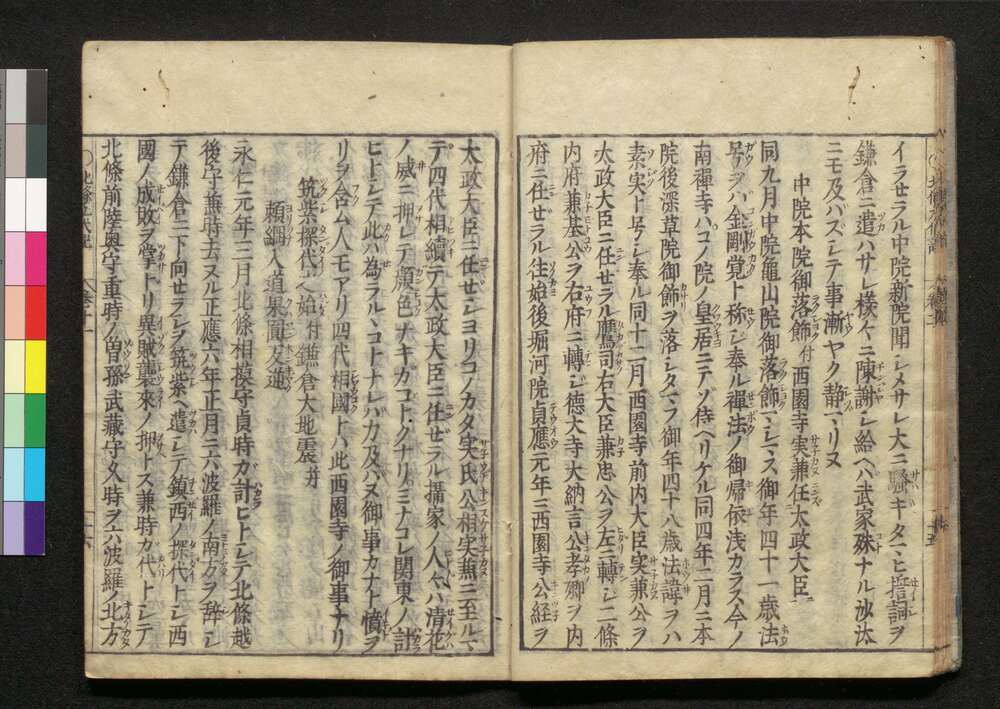 イラセラル中院新院聞シメサレ大ニ騒キタマヒ誓詞ヲ
鎌倉ニ遣ハサレ様々ニ陳謝シ給ヘバ武家殊ナル沙汰
ニモ及バズシテ事漸ヤク静マリヌ
中院本院御落飾付西園寺実兼任太政大臣
同九月中院亀山院御落飾マシマス御年四十一歳法
号ヲバ金剛覚ト称シ奉ル禅法ノ御帰依浅カラス今ノ
南禅寺ハコノ院ノ皇居ニテゾ侍ベリケル同四年二月ニ本
院後深草院御飾ヲ落シタマフ御年四十八歳法諱ヲハ
素実ト号シ奉ル同十二月西園寺前内大臣実兼公ヲ
太政大臣ニ任セラル鷹司右大臣兼忠公ヲ左ニ轉シ二條
内府兼基公ヲ右府ニ轉ジ徳大寺大納言公孝卿ヲ内
府ニ任ゼラル往始後堀河院貞應元年ニ西園寺公経ヲ
太政大臣ニ任セシヨリコノカタ実氏公相実兼ニ至ルマ
デ四代相續テ太政大臣ニ任ゼラル攝家ノ人々ハ清花
ノ威ニ押レテ顔色ナキガコトクナリミナコレ関東ノ計
ヒトシテ此ハ為ラルヽコトナレバ力及バヌ御事カナト憤ヲ
リヲ含ム人モアリ四代相國トハ此西園寺ノ御事ナリ
筑紫探代ノ始付鎌倉大地震并
頼綱入道果圓反逆
永仁元年三月北條相模守貞時ガ計ヒトシテ北條越
後守兼時去ヌル正應六年正月ニ六波羅ノ南方ヲ辞シ
テ鎌倉ニ下向セラレシヲ筑紫ヘ遣シテ鎮西ノ探代トシ西
國ノ成敗ヲ掌トリ異賊襲來ノ押トス兼時ガ代トシテ
北條前陸奥守重時ノ曽孫武藏守久時ヲ六波羅ノ北方